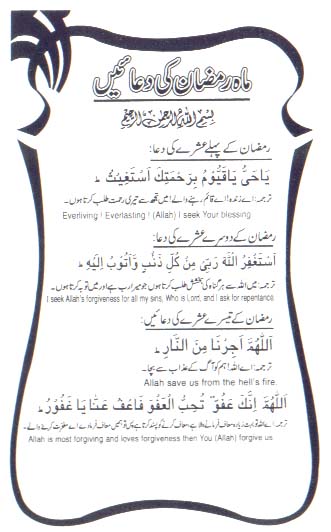 ماہ رمضان کی دعائیں
بِسْمِ اللهِ الرَّحْمٰنِ الرَّحِيْمِ
رمضان کے پہلے عشرے کی دعا:
يَاحَیُّ يَاقَيُّوْمُ بِرَحْمَتِكَ اَسْتَغِيْثُ ط
ترجمہ: اے زندہ، اے قائم رہنے والے! میں تجھ سے تیری رحمت طلب کرتا ہوں۔
Everliving ! Everlasting ! (Allah) I seek Your blessing
رمضان کے دوسرے عشرے کی دعا:
اَسْتَغْفِرُ اللّٰهَ رَبِّىْ مِنْ كُلِّ ذَنْبٍ وَّاَتُوْبُ اِلَيْهِ ط
ترجمہ: میں اللہ سے ہر گناہ کی بخشش طلب کرتا ہوں جو میرا رب ہے اور میں توبہ کرتا ہوں۔
I seek Allah's forgiveness for all my sins, Who is Lord, and I ask for repentance
رمضان کے تیسرے عشرے کی دعائیں:
اَللّٰهُمَّ اَجِرْنَا مِنَ النَّارِ ط
ترجمہ: اے اللہ! ہم کو آگ کے عذاب سے بچا۔
Allah save us from the hell's fire.
اَللّٰهُمَّ اِنَّكَ عَفُوٌّ تُحِبُّ الْعَفْوَ فَاعْفُ عَنَّا يَا غَفُوْرُ ط
ترجمہ: اے اللہ تو بہت زیادہ معاف فرمانے والا ہے، معاف کرنے کو پسند کرتا ہے پس تو ہمیں معاف فرما دے اے مغفرت کرنے والے۔
Allah is most forgiving and loves forgiveness then You (Allah) forgive us